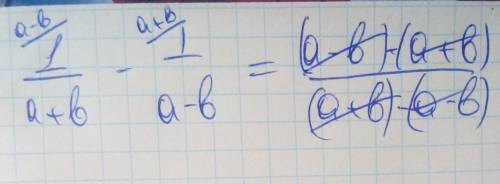 a-b/ a+b/
1/(a+b) - 1/(a-b) = (a-b)-(a+b)/(a+b)-(a-b)